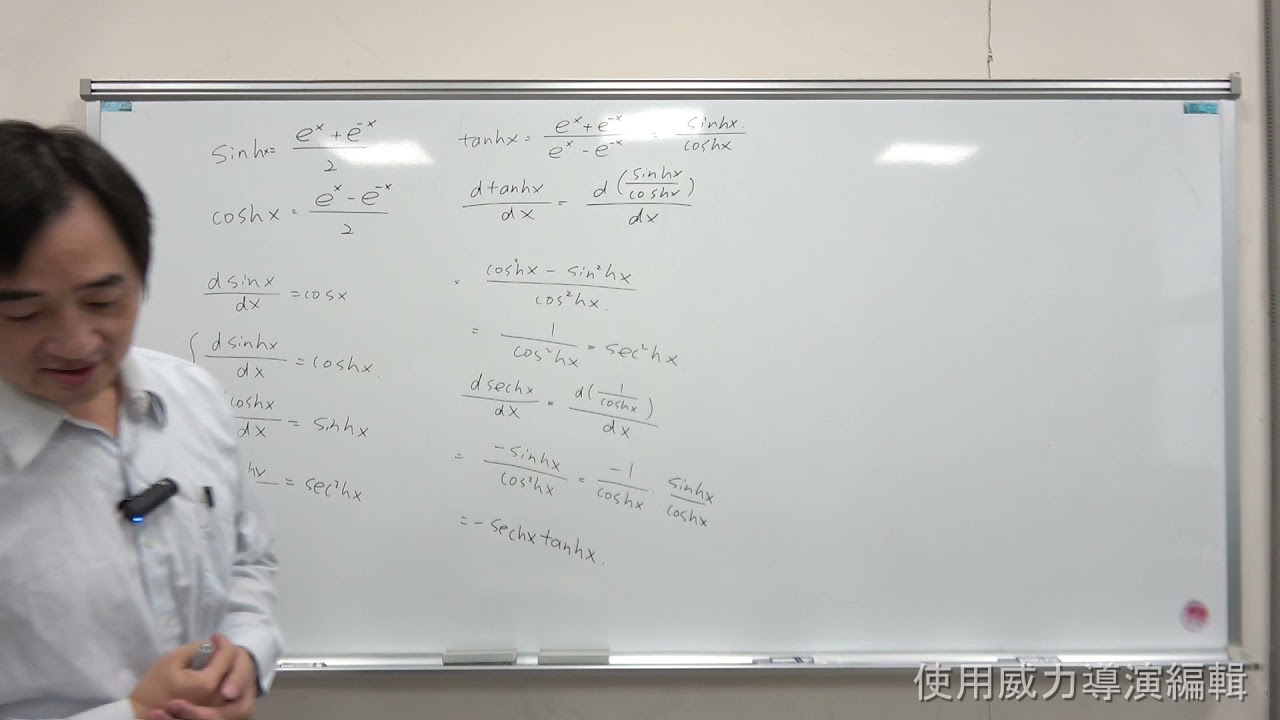 sinhx = (e^x + e^-x) / 2
coshx = (e^x - e^-x) / 2
d sinx / dx = cosx
d sinhx / dx = coshx.
coshx / dx = sinhx
= sec²hx
tanhx = (e^x + e^-x) / (e^x - e^-x) = sinhx. / coshx
d tanhx / dx = d (sinhx / coshx) / dx
= (cos²hx - sin²hx) / cos²hx.
= 1 / cos²hx = sec²hx.
d sechx / dx = d(1 / coshx) / dx
= -sinhx / cos²hx = -1 / coshx · sinhx / coshx
= - sechx tanhx.
使用威力導演編輯